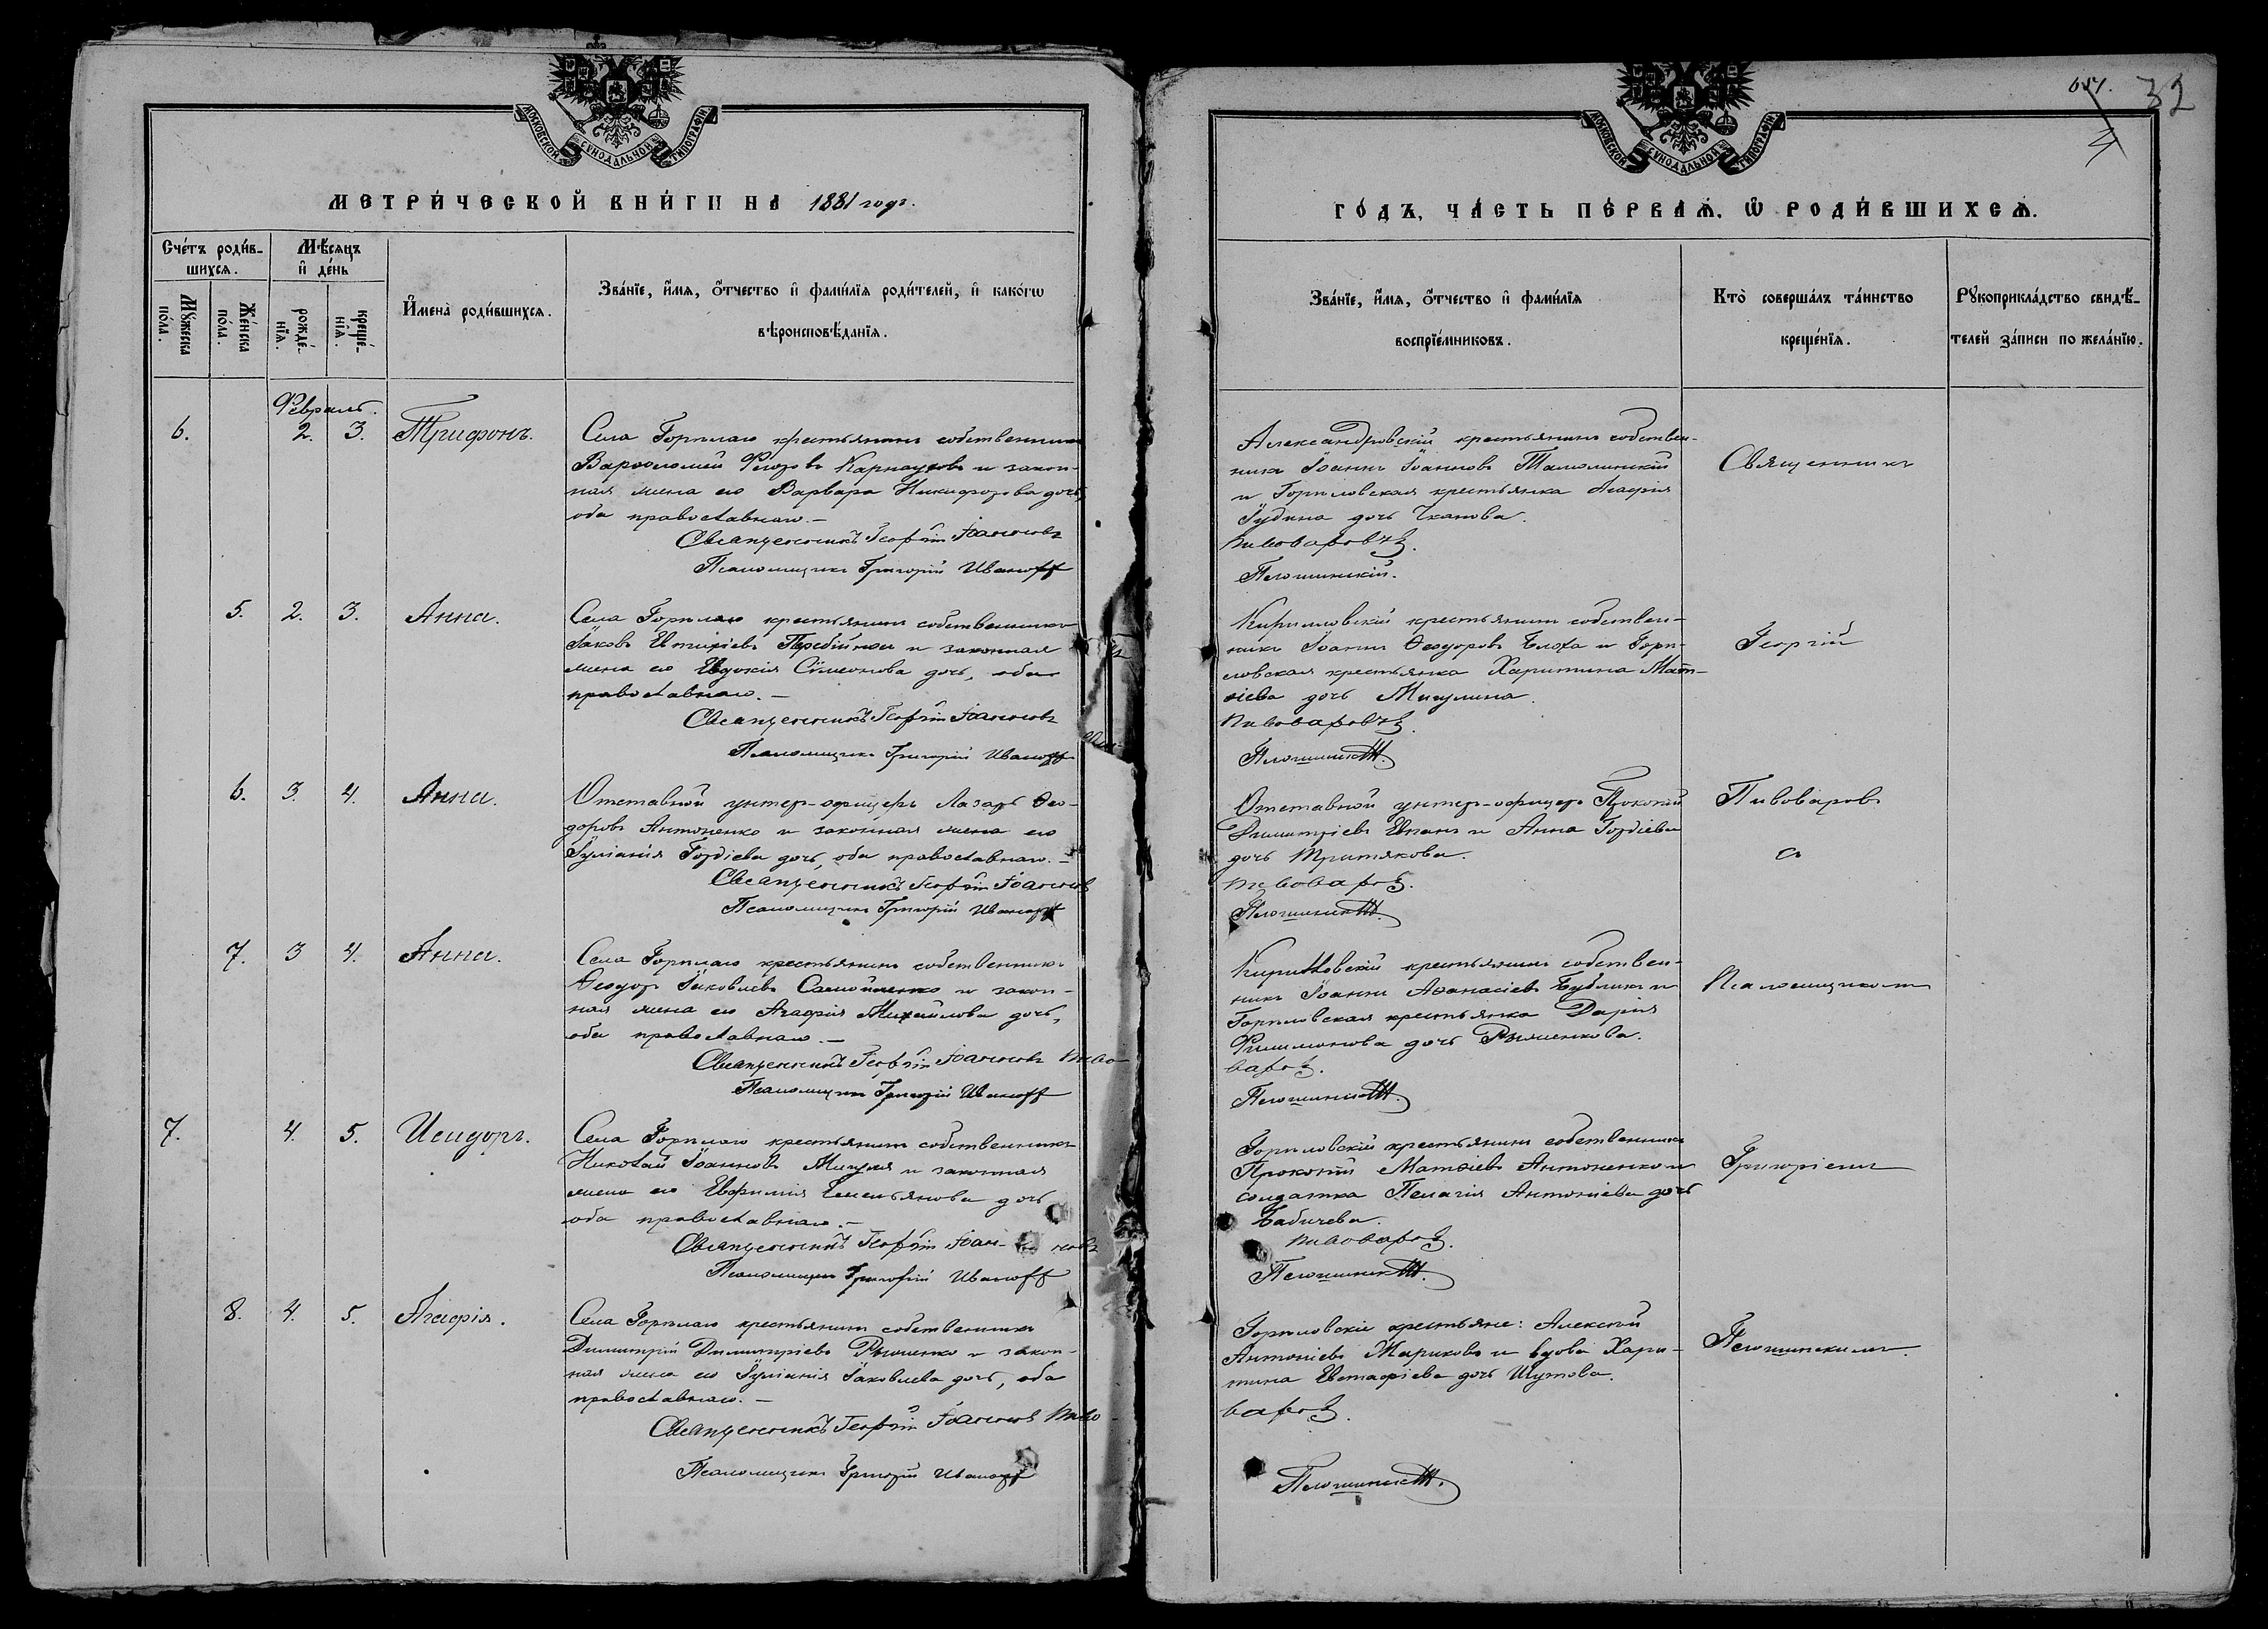 МОСКОВСКОЙ СѴНОДАЛЬНОЙ ТИПОГРАФІИ
МЕТРИ́ЧЕСКОЙ КНИ́ГИ НА 1881 годъ.
Сче́тъ роди́в-
шихся.
Мѣ́сяцъ
и҆ де́нь
Мꙋ́жеска
по́ла.
Же́нска
по́ла.
рожде́-
нїя.
креще́-
нїя.
И҆мена̀ роди́вшихся.
Зва́нїе, и҆́мя, ѻ҆́тчество и҆ фами́лїя роди́телей, и҆ како́гѡ
вѣроисповѣ́данїя.
Февраль.
6.
2.
3.
Трифонъ.
Села Горѣлаго крестьянинъ собственникъ
Варѳоломей Карнауховъ и закон-
ная жена его Варвара Никифорова дочь,
оба православнаго.—
Священникъ Георгій Іоанновъ
Псаломщикъ Григорій Иваноff
5.
2.
3.
Анна.
Села Горѣлаго крестьянинъ собственникъ
Іаковъ Евтихіевъ и законная
жена его Евдокія Сѵмеонова дочь, оба
православнаго.—
Священникъ Георгій Іоанновъ
Псаломщикъ Григорій Иваноff
6.
3.
4.
Анна.
Отставной унтер-офицеръ Лазарь Ѳео-
доровъ Антоненко и законная жена его
Іуліанія Гордіева дочь, оба православнаго.—
Священникъ Георгій Іоанновъ
Псаломщикъ Григорій Иваноff
7.
3
4.
Анна.
Села Горѣлаго крестьянинъ собственникъ
Ѳеодоръ Іаковлевъ Самойленко и закон-
ная жена его Агафія Михайлова дочь,
оба православнаго.—
Священникъ Георгій Іоанновъ Пиво-
Псаломщикъ Григорій Иваноff
7.
4.
5.
Исидоръ.
Села Горѣлаго крестьянинъ собственникъ
Николай Іоанновъ Мигуля и законная
жена его Евфимія Емельянова дочь
оба православнаго.—
Священникъ Георгій Іоан- новъ
Псаломщикъ Григорій Иваноff
8.
4.
5.
Агафія.
Села Горѣлаго крестьянинъ собственникъ
Димитрій Димитріевъ Рыженко и закон-
ная жена его Іуліанія Іаковлева дочь, оба
православнаго.—
Священникъ Георгій Іоанновъ Пиво-
Псаломщикъ Григорій Иваноff
32
МОСКОВСКОЙ СѴНОДАЛЬНОЙ ТИПОГРАФІИ
ГО́ДЪ, ЧА́СТЬ ПЕ́РВАЯ, Ѡ҆ РОДИ́ВШИХСЯ.
Зва́нїе, и҆́мя, ѻ҆́тчество и҆ фами́лїя
воспрїе́мниковъ.
Кто̀ соверша́лъ та́инство
креще́нїя.
Рꙋкоприкла́дство свидѣ́-
телей за́писи по жела́нїю.
Александровскій крестьянинъ собствен-
никъ Іоаннъ Іоанновъ
и Горѣловская крестьянка Агафія
Іудина дочь Чканова.
Пивоваровъ.
Плошинскій.
Священникъ
Кирилловскій крестьянинъ собствен-
никъ Іоаннъ Ѳеодоровъ Блоха и Горѣ-
ловская крестьянка Харитина Мат-
ѳіева дочь Мигулина.
Пивоваровъ.
Плошинскій.
Георгій
Отставной унтер-офицеръ Прокопій
Димитріевъ и Анна Гордіева
дочь Третякова.
Пивоваровъ.
Плошинскій.
Пивоваровъ
съ
Кирилловскій крестьянинъ собствен-
никъ Іоаннъ Аѳанасіевъ Бубликъ и
Горѣловская крестьянка Дарія
Филимонова дочь Рыженкова.
варовъ.
Плошинскій.
Псаломщикомъ
Горѣловскій крестьянинъ собственникъ
Прокопій Матѳіевъ Антоненко и
солдатка Пелагія Антоніева дочь
Бабичева.
Пивоваровъ.
Плошинскій.
Григоріемъ
Горѣловскіе крестьяне: Алексѣй
Антоніевъ Мариковъ и вдова Хари-
тина Евстафіева дочь Шутова.
варовъ.
Плошинскій.
Плошинскимъ.